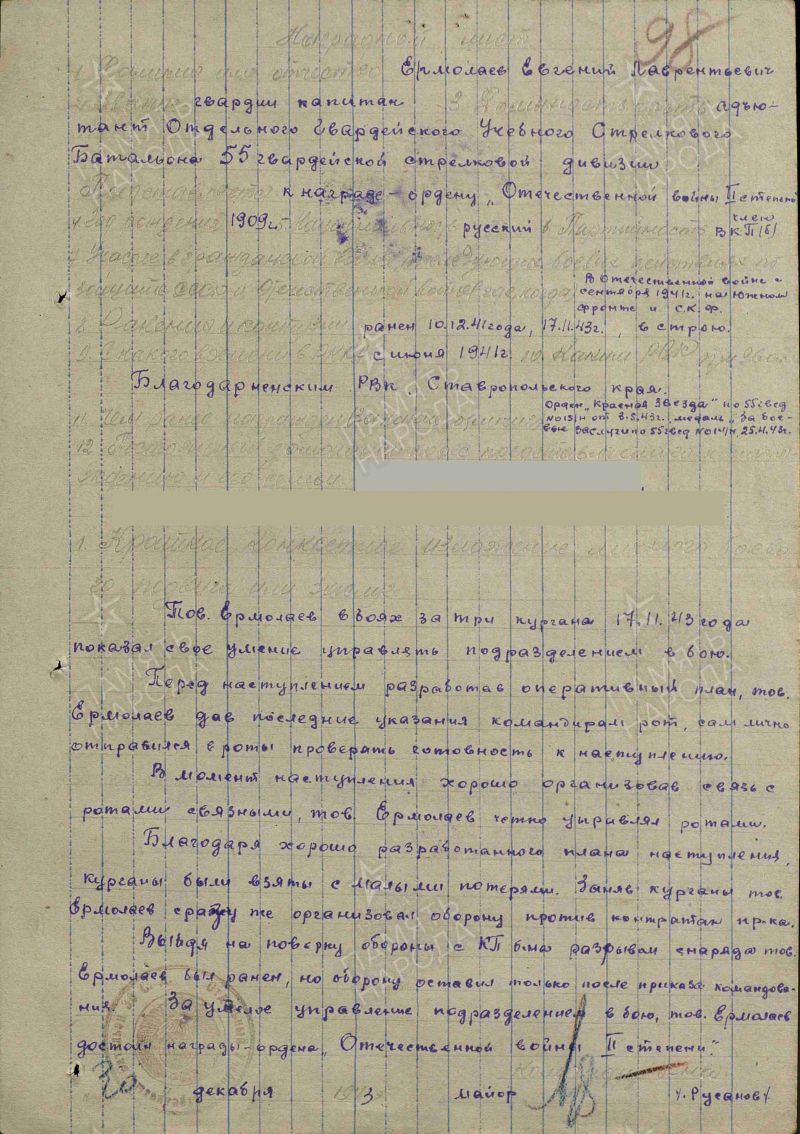 Наградной лист
98
1. Фамилия имя отчество Ермолаев Евгений Лаврентьевич
гвардии капитан 3. Должность, часть адъю-
тант Отдельного Гвардейского Учебного Стрелкового
Батальона 55 гвардейской стрелковой дивизии
Представляется к награде – ордену „Отечественной войны II степени
4. Год рождения 1909г. 5. Национальность русский 6. Партийность член
ВКП(б)
7. Участие в гражданской войне, последующих боевых действиях по
защите СССР и Отечественной войне где, когда В Отечественной войне с
сентября 1941г. на Южном
фронте и С.К.Ф.
8. Ранения и контузии ранен 10.12.41года, 17.11.43г., в строю.
9. С какого времени в РККА с июня 1941г. 10. Каким РВК призван
Благодарненским РВК. Ставропольского края.
11. Чем ранее награжден Орден „Красная Звезда" по 55гвсд
№015/н от 3.5.43г. медаль „За бое-
вые заслуги по 55гвсд №014/н 25.4.43г.
12. Постоянный домашний адрес
1. Краткое конкретное изложение личного боево
го подвига или заслуг
Тов. Ермолаев в боях за три кургана 17.11.43 года
показал свое умение управлять подразделением в бою.
Перед наступлением разработав оперативный план, тов.
Ермолаев дав последние указания командирам рот, сам лично
отправился в роты проверять готовность к наступлению.
В момент наступления хорошо организовав связь с
ротами связными, тов. Ермолаев четко управлял ротами.
Благодаря хорошо разработанного плана наступления,
курганы были взяты с малыми потерями. Заняв курганы тов.
Ермолаев сразу же организовал оборону против контратак пр-ка.
Выйдя на поверку обороны с КП б-на разрывом снаряда тов.
Ермолаев был ранен, но оборону оставил только после приказа командова-
ния. За умелое управление подразделением в бою, тов. Ермолаев
достоин награды – ордена „Отечественной войны II степени".
30 декабря 1943 майор /Русанов/
ПАМЯТЬ НАРОДА